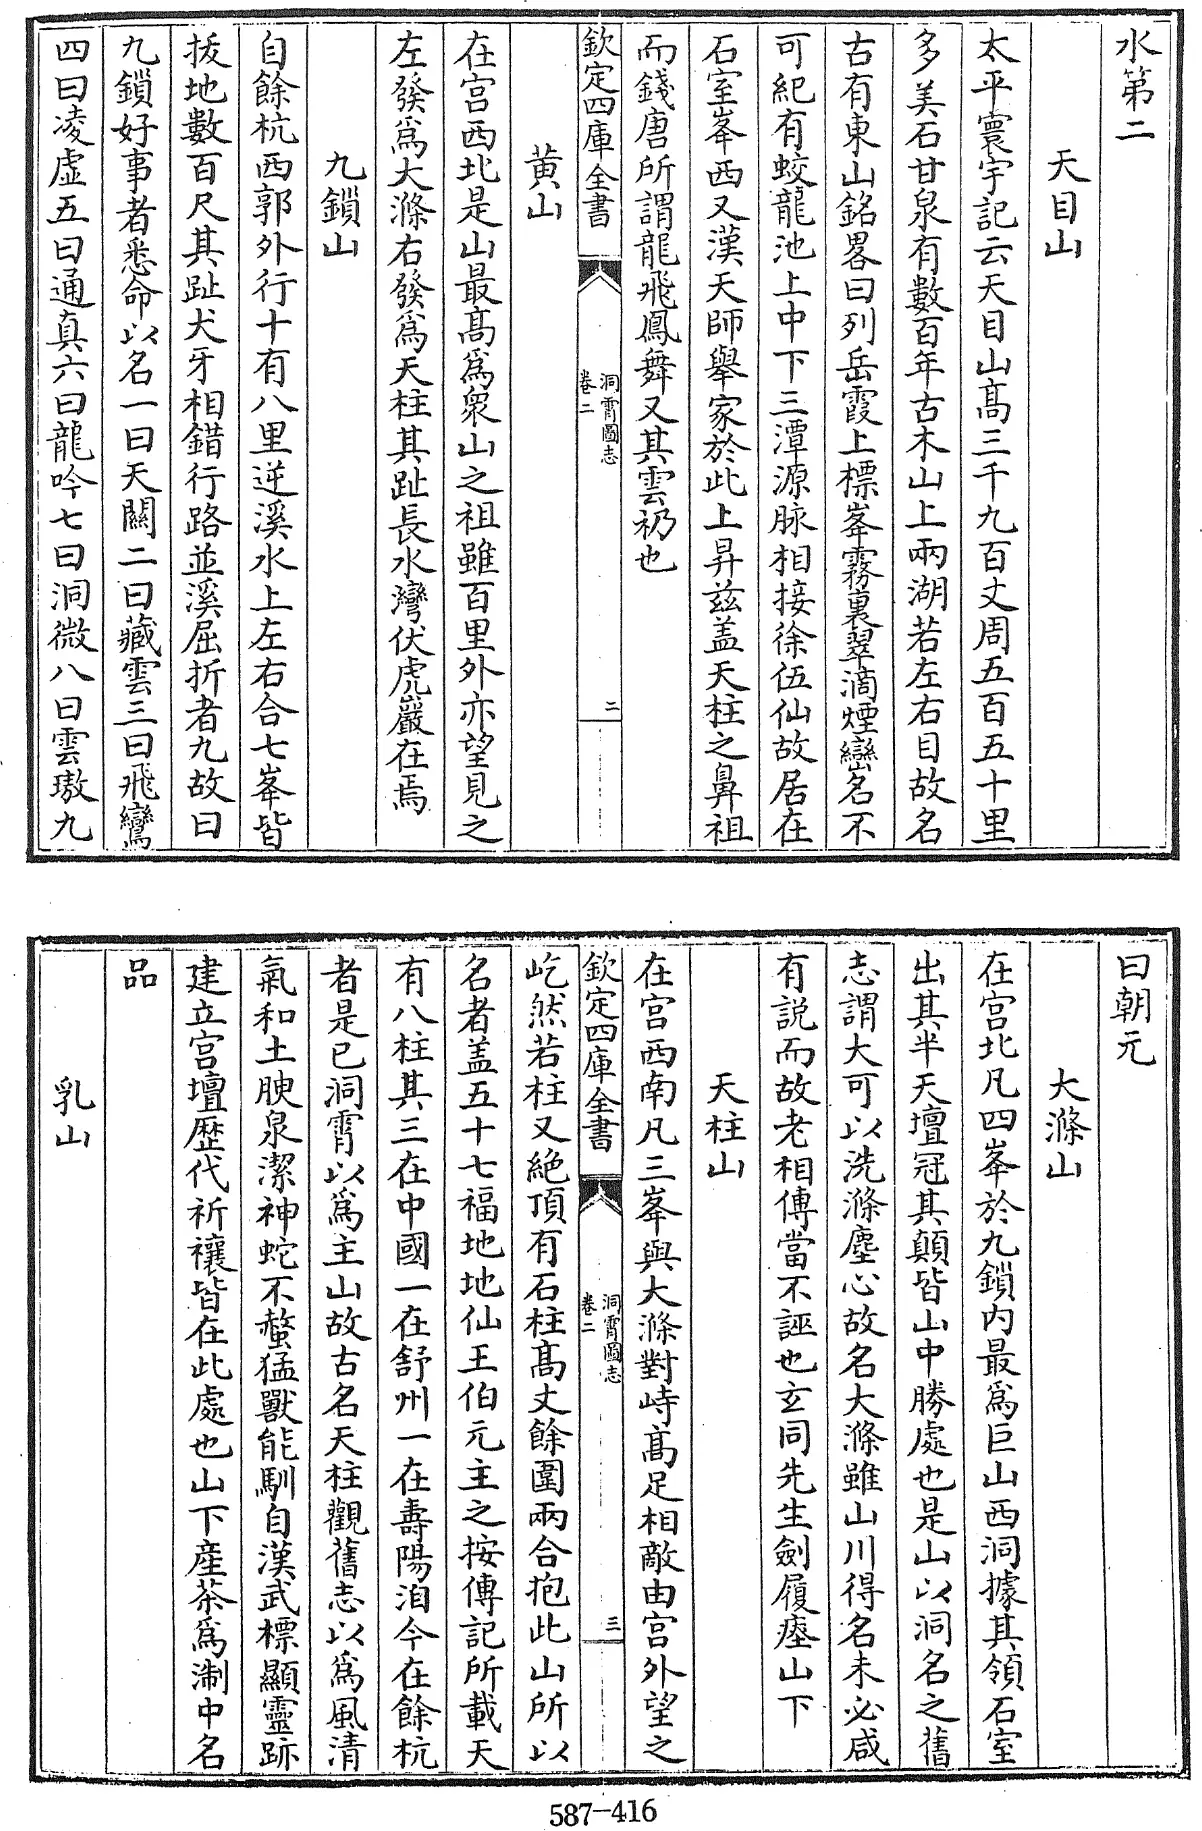 水第二
天目山
太平寰宇記云天目山髙三千九百丈周五百五十里
多美石甘泉有數百年古木山上兩湖若左右目故名
古有東山銘畧曰列岳霞上標峯霧裏翠滴煙巒名不
可紀有蛟龍池上中下三潭源脉相接徐伍仙故居在
石室峯西又漢天師舉家於此上昇兹盖天柱之鼻祖
而錢唐所謂龍飛鳳舞又其雲礽也
欽定四庫全書
洞霄圖志
卷二
二
黄山
在宫西北是山最髙為衆山之祖雖百里外亦望見之
左發為大滌右發為天柱其趾長水灣伏虎巖在焉
九鎖山
自餘杭西郭外行十有八里逆溪水上左右合七峯皆
拔地數百尺其趾犬牙相錯行路並溪屈折者九故曰
九鎖好事者悉命以名一曰天關二曰藏雲三曰飛鸞
四曰凌虚五曰通真六曰龍吟七曰洞微八曰雲璈九
曰朝元
大滌山
在宫北凡四峯於九鎖内最為巨山西洞據其領石室
出其半天壇冠其顛皆山中勝處也是山以洞名之舊
志謂大可以洗滌塵心故名大滌雖山川得名未必咸
有説而故老相傳當不誣也玄同先生劍履瘞山下
天柱山
在宫西南凡三峯與大滌對峙髙足相敵由宫外望之
欽定四庫全書
洞霄圖志
卷二
三
屹然若柱又絶頂有石柱髙丈餘圍兩合抱此山所以
名者盖五十七福地地仙王伯元主之按傳記所載天
有八柱其三在中國一在舒州一在壽陽洎今在餘杭
者是已洞霄以為主山故古名天柱觀舊志以為風清
氣和土腴泉潔神蛇不螫猛獸能馴自漢武標顯靈跡
建立宫壇歴代祈禳皆在此處也山下産茶為淛中名
品
乳山
587-416